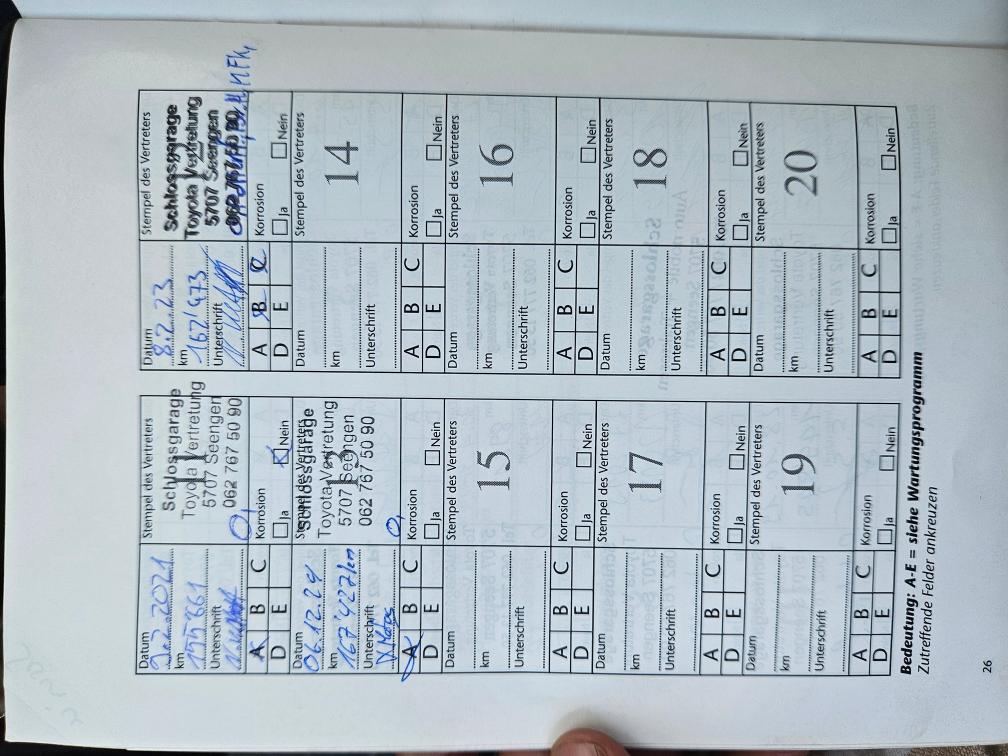 Datum
Stempel des Vertreters
Schlossgarage
Toyota Vertretung
5707 Seengen
062 767 50 90
km
155'661
Unterschrift
A B C
D E
Korrosion
Ja Nein
Datum
8.2.23
Stempel des Vertreters
Schlossgarage
Toyota Vertretung
5707 Seengen
062 767 50 90
km
162'473
Unterschrift
A B C
D E
Korrosion
Ja Nein
Datum
06.12.24
Stempel des Vertreters
Schlossgarage
Toyota Vertretung
5707 Seengen
062 767 50 90
km
167'427km
Unterschrift
A B C
D E
Korrosion
Ja Nein
Datum
Stempel des Vertreters
14
km
Unterschrift
A B C
D E
Korrosion
Ja Nein
Datum
Stempel des Vertreters
15
km
Unterschrift
A B C
D E
Korrosion
Ja Nein
Datum
Stempel des Vertreters
16
km
Unterschrift
A B C
D E
Korrosion
Ja Nein
Datum
Stempel des Vertreters
17
km
Unterschrift
A B C
D E
Korrosion
Ja Nein
Datum
Stempel des Vertreters
18
km
Unterschrift
A B C
D E
Korrosion
Ja Nein
Datum
Stempel des Vertreters
19
km
Unterschrift
A B C
D E
Korrosion
Ja Nein
Datum
Stempel des Vertreters
20
km
Unterschrift
A B C
D E
Korrosion
Ja Nein
Bedeutung: A-E = siehe Wartungsprogramm
Zutreffende Felder ankreuzen
26